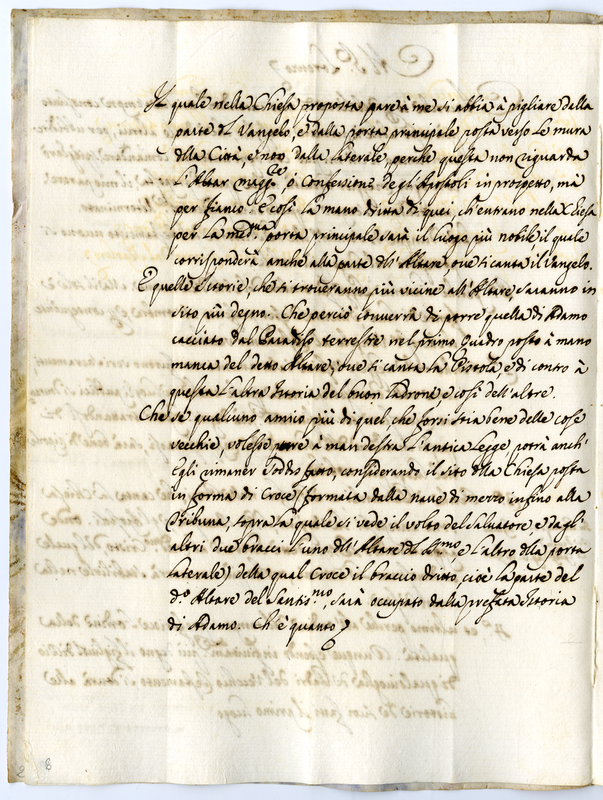 Il quale nella Chiesa proposta pare à me si abbia à pigliare della
parte del Vangelo, e dalla porta principale posta verso le mura
della Città, e non dalla laterale, perche questa non riguarda
l'Altar magg.re ò Confessione degl'Apostoli in prospetto, mà
per fianco. E così la mano dritta di quei, ch'entrano nella Chiesa
per la med.ma porta principale sarà il luogo più nobile il quale
corrisponderà anche alla parte dell'Altare, ove si canta il Vangelo.
E quelle Istorie, che si troveranno più vicine all'Altare, saranno in
sito più degno. Che perciò converrà di porre quella di Adamo
cacciato dal Paradiso terrestre nel primo Quadro posto à mano
manca del detto Altare, ove si canta la Pistola, e di contro à
questa l'altra Istoria del buon Ladrone e così dell'altre.
Che se qualcuno amico più di quel, che forsi stia bene delle cose
vecchie, volesse à man destra l'antica Legge, potrà anch'
Egli rimaner soddisfatto, considerando il sito della Chiesa posta
in forma di Croce (formata dalla nave di mezzo infino alla
Tribuna, sopra la quale si vede il volto del Salvatore e dagl'
altri due bracci l'uno dell'Altare del S.mo, e l'altro della porta
laterale) della qual Croce il braccio dritto, cioè la parte del
d.o Altare del Santis.mo, sarà occupato dalla prefata Istoria
di Adamo. Ch'è quanto
8